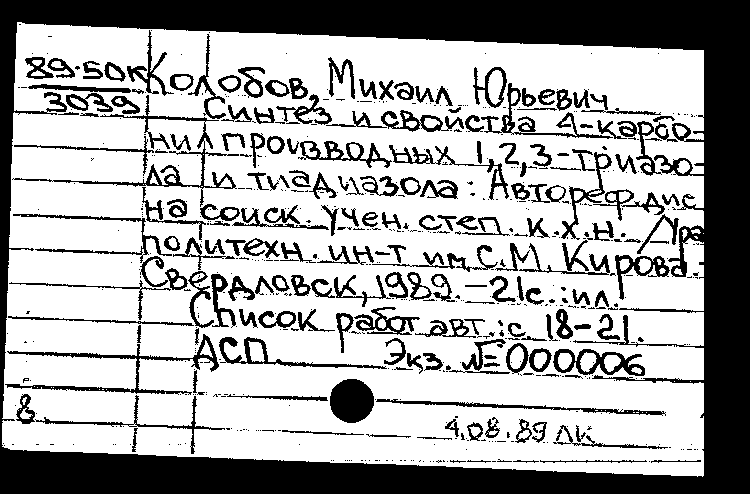 89-50к Колобов, Михаил Юрьевич.
3039 Синтез и свойства 4-карбо-
нил производных 1,2,3-триазо-
ла и тиадиазола: Автореф. дис
на соиск. учен. степ. к.х.н. / Ура
политехн. ин-т им. С.М. Кирова. -
Свердловск, 1989. - 21с.: ил.
Список работ авт.: с 18-21.
АСП. Экз. № 000006
8.
4.08.89 ЛК